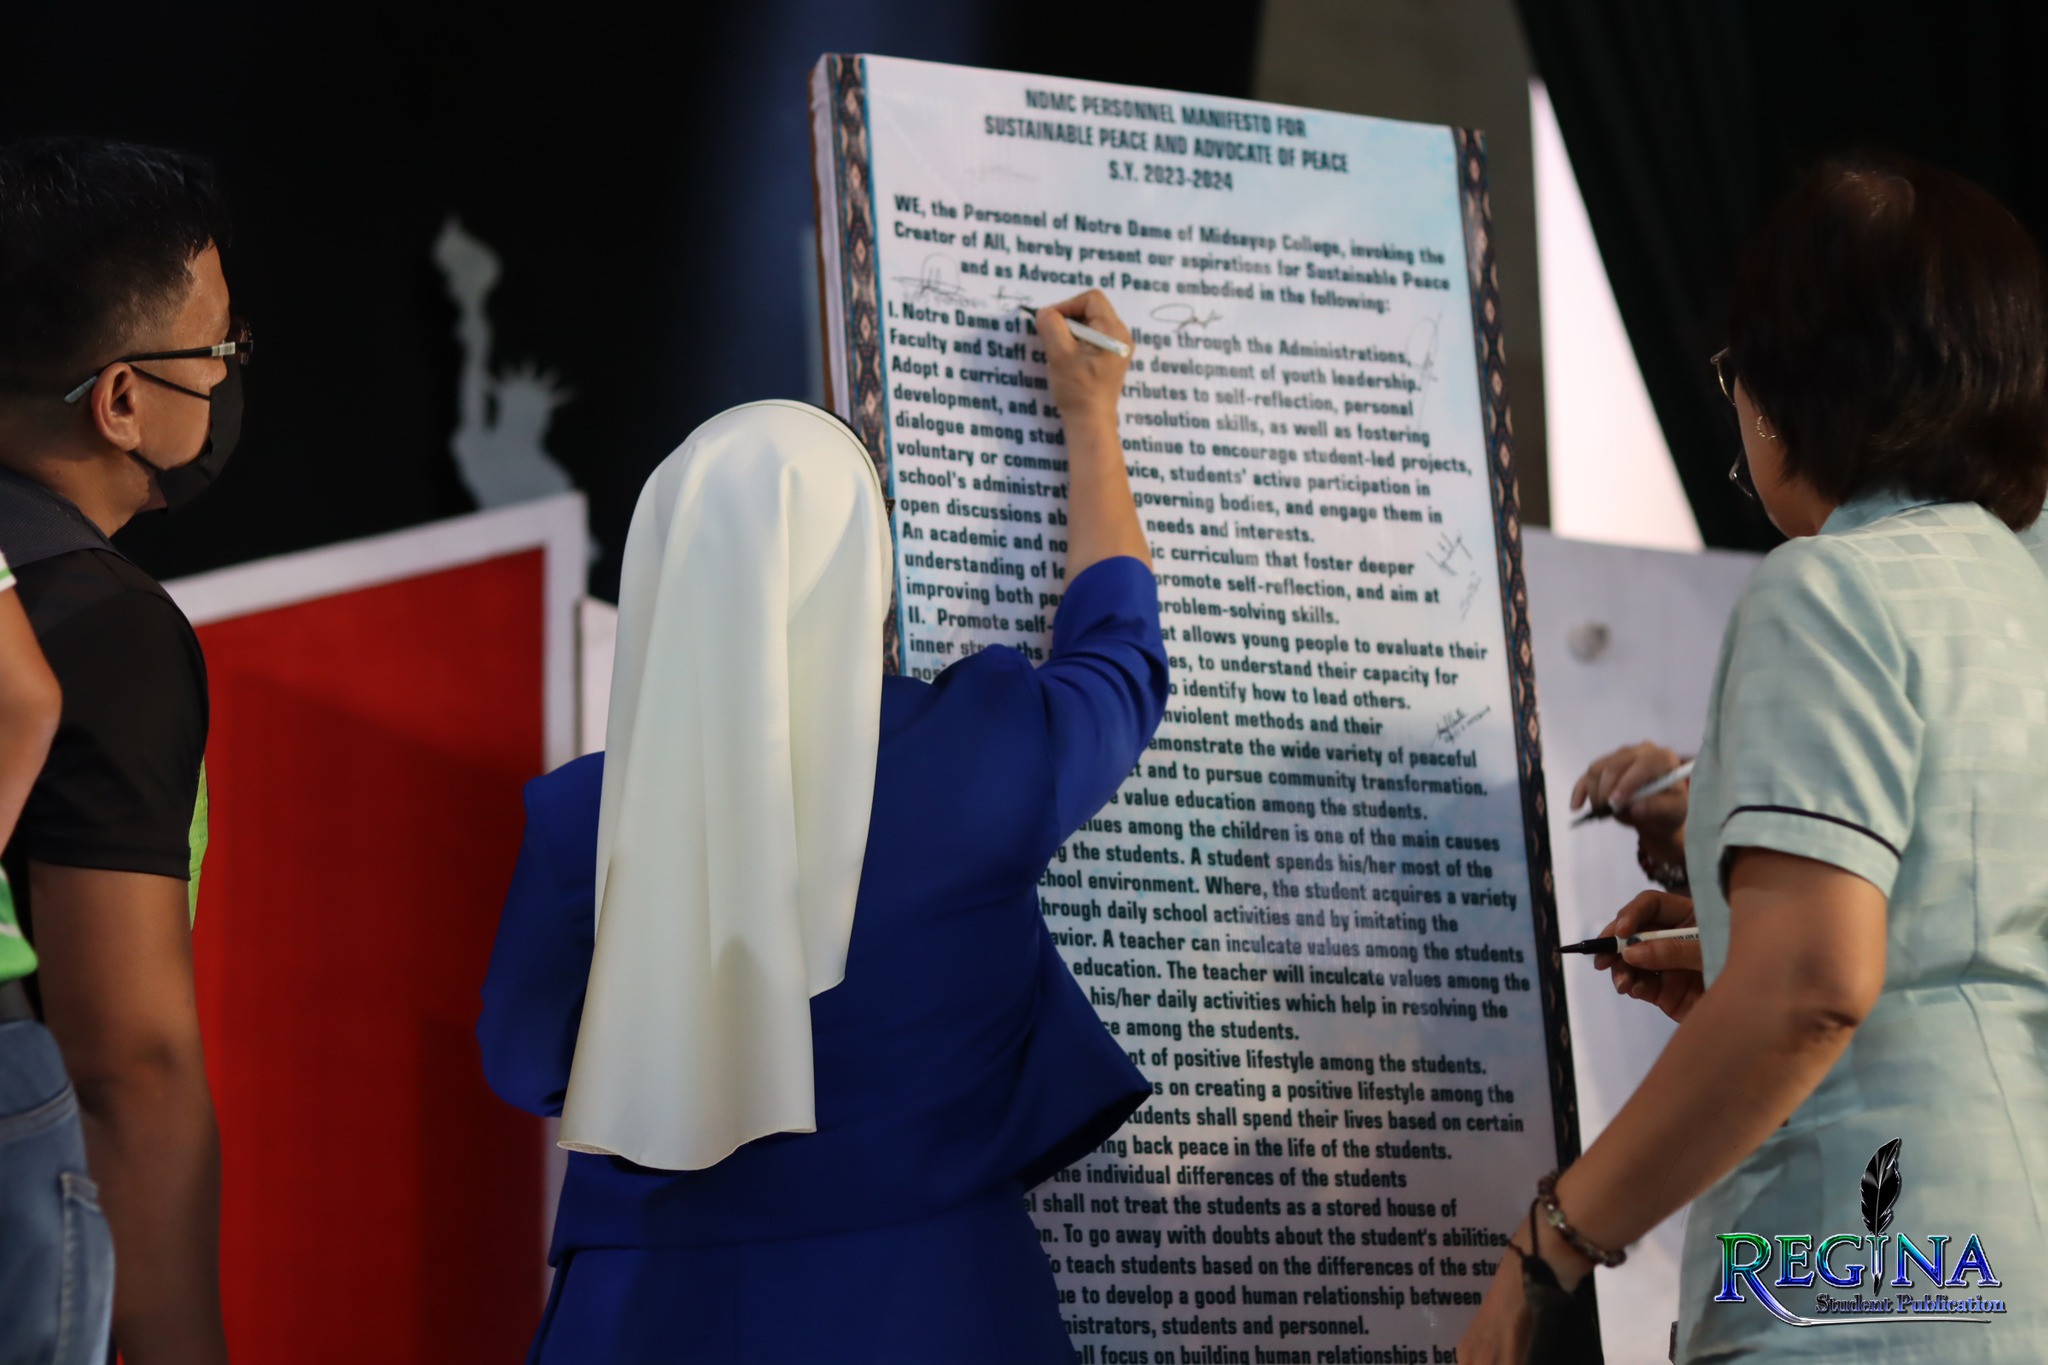 NDMC PERSONNEL MANIFESTO FOR
SUSTAINABLE PEACE AND ADVOCATE OF PEACE
S.Y. 2023-2024
WE, the Personnel of Notre Dame of Midsayap College, invoking the
Creator of All, hereby present our aspirations for Sustainable Peace
and as Advocate of Peace embodied in the following:
I. Notre Dame of llege through the Administrations,
Faculty and Staff development of youth leadership.
Adopt a curriculum tributes to self-reflection, personal
development, and resolution skills, as well as fostering
dialogue among stud ontinue to encourage student-led projects,
voluntary or commun vice, students' active participation in
school's administrat governing bodies, and engage them in
open discussions ab needs and interests.
An academic and no ic curriculum that foster deeper
understanding of promote self-reflection, and aim at
improving both problem-solving skills.
II. Promote self- at allows young people to evaluate their
inner es, to understand their capacity for
identify how to lead others.
nviolent methods and their
emonstrate the wide variety of peaceful
and to pursue community transformation.
value education among the students.
alues among the children is one of the main causes
g the students. A student spends his/her most of the
chool environment. Where, the student acquires a variety
through daily school activities and by imitating the
avior. A teacher can inculcate values among the students
education. The teacher will inculcate values among the
his/her daily activities which help in resolving the
ce among the students.
nt of positive lifestyle among the students.
us on creating a positive lifestyle among the
tudents shall spend their lives based on certain
ring back peace in the life of the students.
the individual differences of the students
el shall not treat the students as a stored house of
on. To go away with doubts about the student's abilities.
To teach students based on the differences of the stu
ue to develop a good human relationship between
nistrators, students and personnel.
all focus on building human relationships bet
REGINA
Student Publication